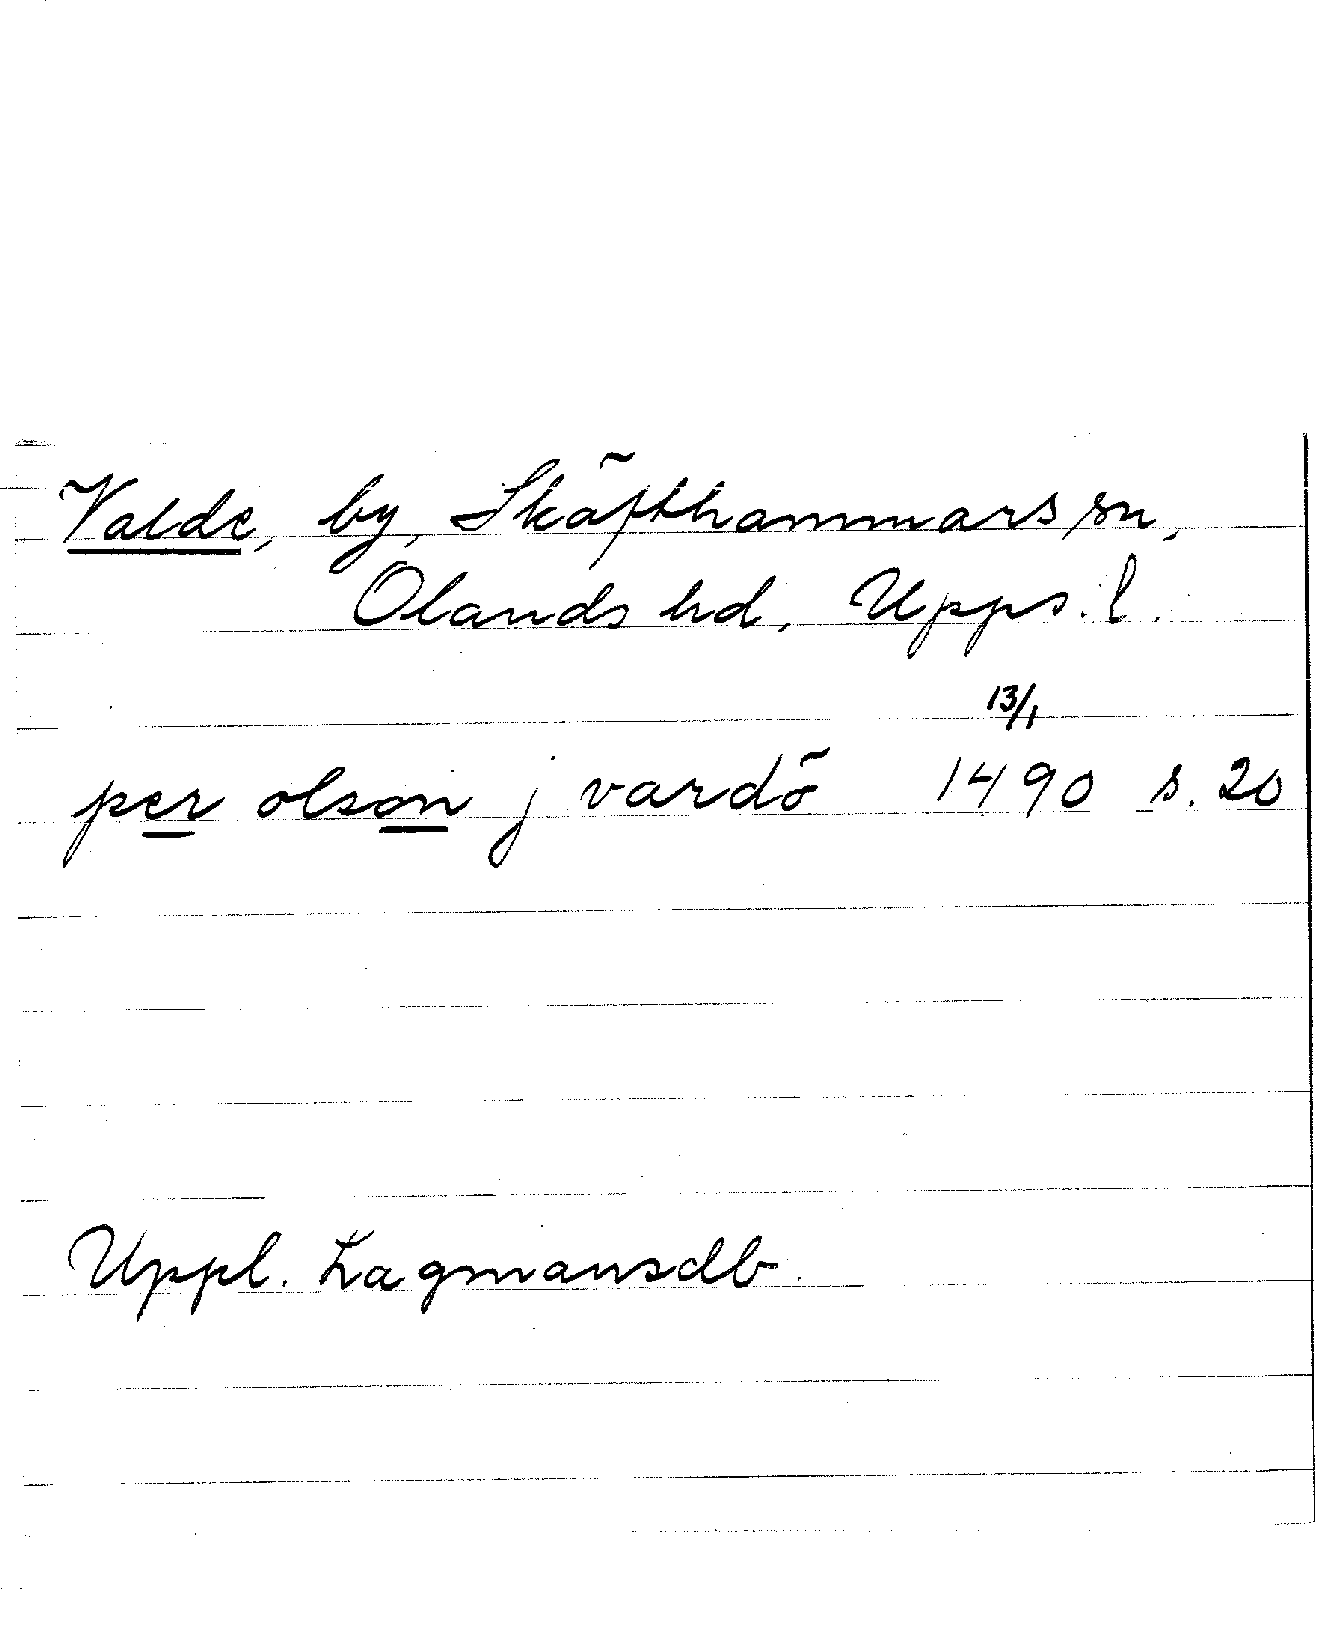 Valde, by, Skäfthammars sn,
Olands hd, Upps. l.
13/1
per olson j vardö 1490 s. 20
Uppl. Lagmansdb.